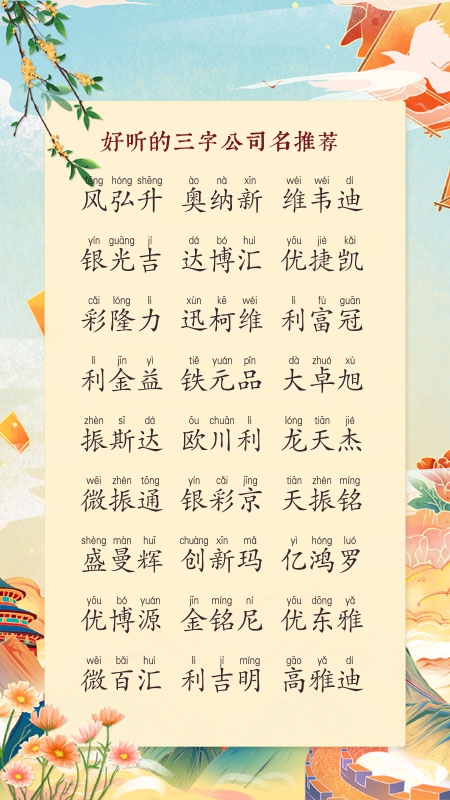 好听的三字公司名推荐
fēng hóng shēng ào nà xīn wéi wéi dí
风弘升 奥纳新 维韦迪
yín guāng jí dá bó huì yōu jié kǎi
银光吉 达博汇 优捷凯
cǎi lóng lì xùn kē wéi lì fù guān
彩隆力 迅柯维 利富冠
lì jīn yì tiě yuán pǐn dà zhuó xù
利金益 铁元品 大卓旭
zhèn sī dá ōu chuān lì lóng tiān jié
振斯达 欧川利 龙天杰
wēi zhèn tōng yín cǎi jīng tiān zhèn míng
微振通 银彩京 天振铭
shèng màn huī chuàng xīn mǎ yì hóng luó
盛曼辉 创新玛 亿鸿罗
yōu bó yuán jīn míng ní yōu dōng yǎ
优博源 金铭尼 优东雅
wēi bǎi huì lì jí míng gāo yǎ dí
微百汇 利吉明 高雅迪